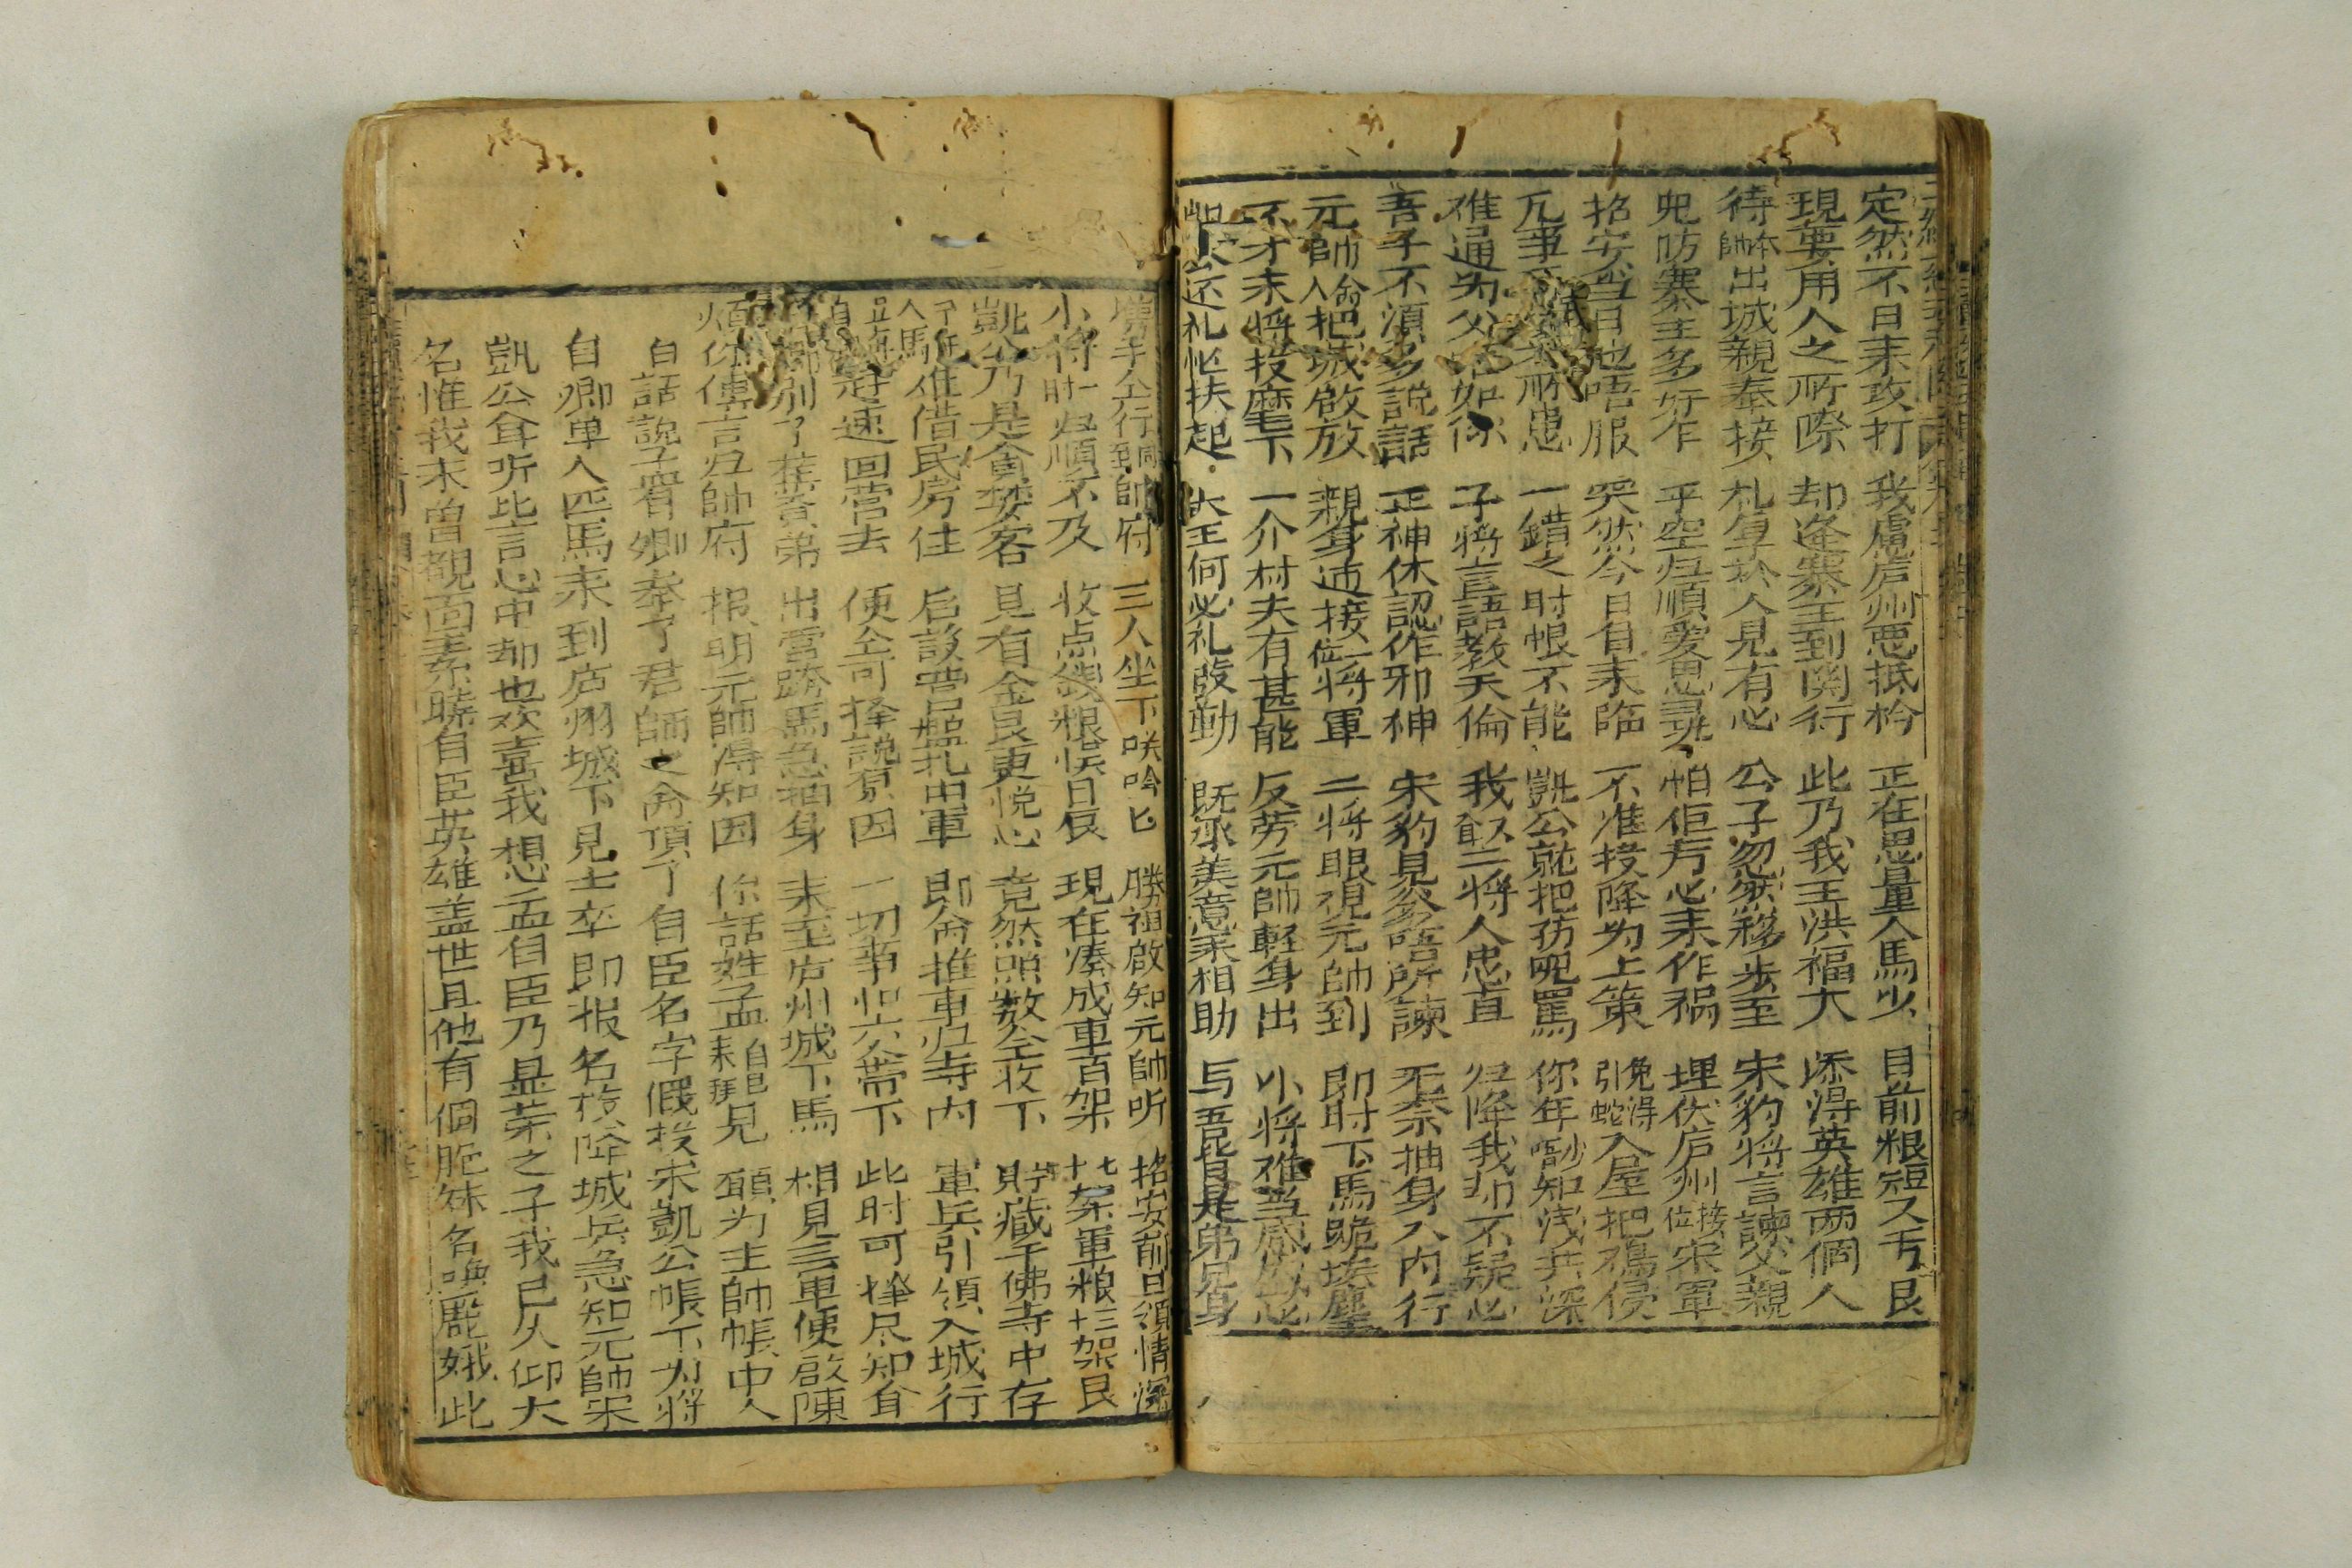 定然不日来攻打 我慮庐州惡抵衿 正在思量人馬少 目前粮短又亐艮
現要用人之所際 却逢寨主到関行 此乃我王洪福大 添淂英雄两個人
待本帥出城親奉接 礼算於人見有心 公子忽然移步至 宋豹将言諫父親
兜防寨主多奸乍 平空归順愛思尋 怕佢歹心来作祸 埋伏庐州接位宋軍
招安当日也唔服 哭然今日自来臨 不准投降为上策 免得引蛇入屋把鴉侵
凢事 所患 一錯之时恨不能 凱公就把孩呢罵 你年少唔知浅共深
难通为父 如你 子将言語教天倫 我敢二将人忠直 归降我却不疑心
吾子不湏多說話 正神休認作邪神 宋豹見爹唔所諫 无奈抽身入内行
元帥 人把城啟放 親身迊接二位将軍 二将眼視元帥到 即时下馬跪埃塵
不才末将投麾下 一介村夫有甚能 反劳元帥輕身出 小将难当感 心
 还礼忙扶起 大王何必礼殷勤 既承美意来相助 与吾皆是弟兄身
 手仝行同到帥府 三人坐下咲吟匕 勝祖啟知元帥听 招安前旦領情深
小将时一归順不及 收点錢粮候日艮 現在凑成車百架 七十架軍粮三十架艮
凱公乃是貪婪客 見有金艮更悦心 竟然照数仝收下 貯藏于佛寺中存
人馬 难借民房住 后設营盤扎中軍 即命推車归寺内 軍兵引領入城行
 速回营去 便仝可擇說原因 一切事忙六帶下 此时可擇尽知音
 别了樁賁弟 出营跨馬急抽身 来至庐州城下馬 相見三軍便啟陳
煩你傳言归帥府 报明元帥淂知因 你話姓孟自臣来拜見 願为主帥帳中人
白話說孟自卿奉了君師之命頂了自臣名字假投宋凱公帳下为将
自卿单人匹馬来到庐州城下見士卒即报名投降城兵急知元帥宋
凱公耳听此言心中却也欢喜我想孟自臣乃显荣之子我已久仰大
名惟我未曾覩面素聴自臣英雄盖世且他有個胞妹名喚麗娥此